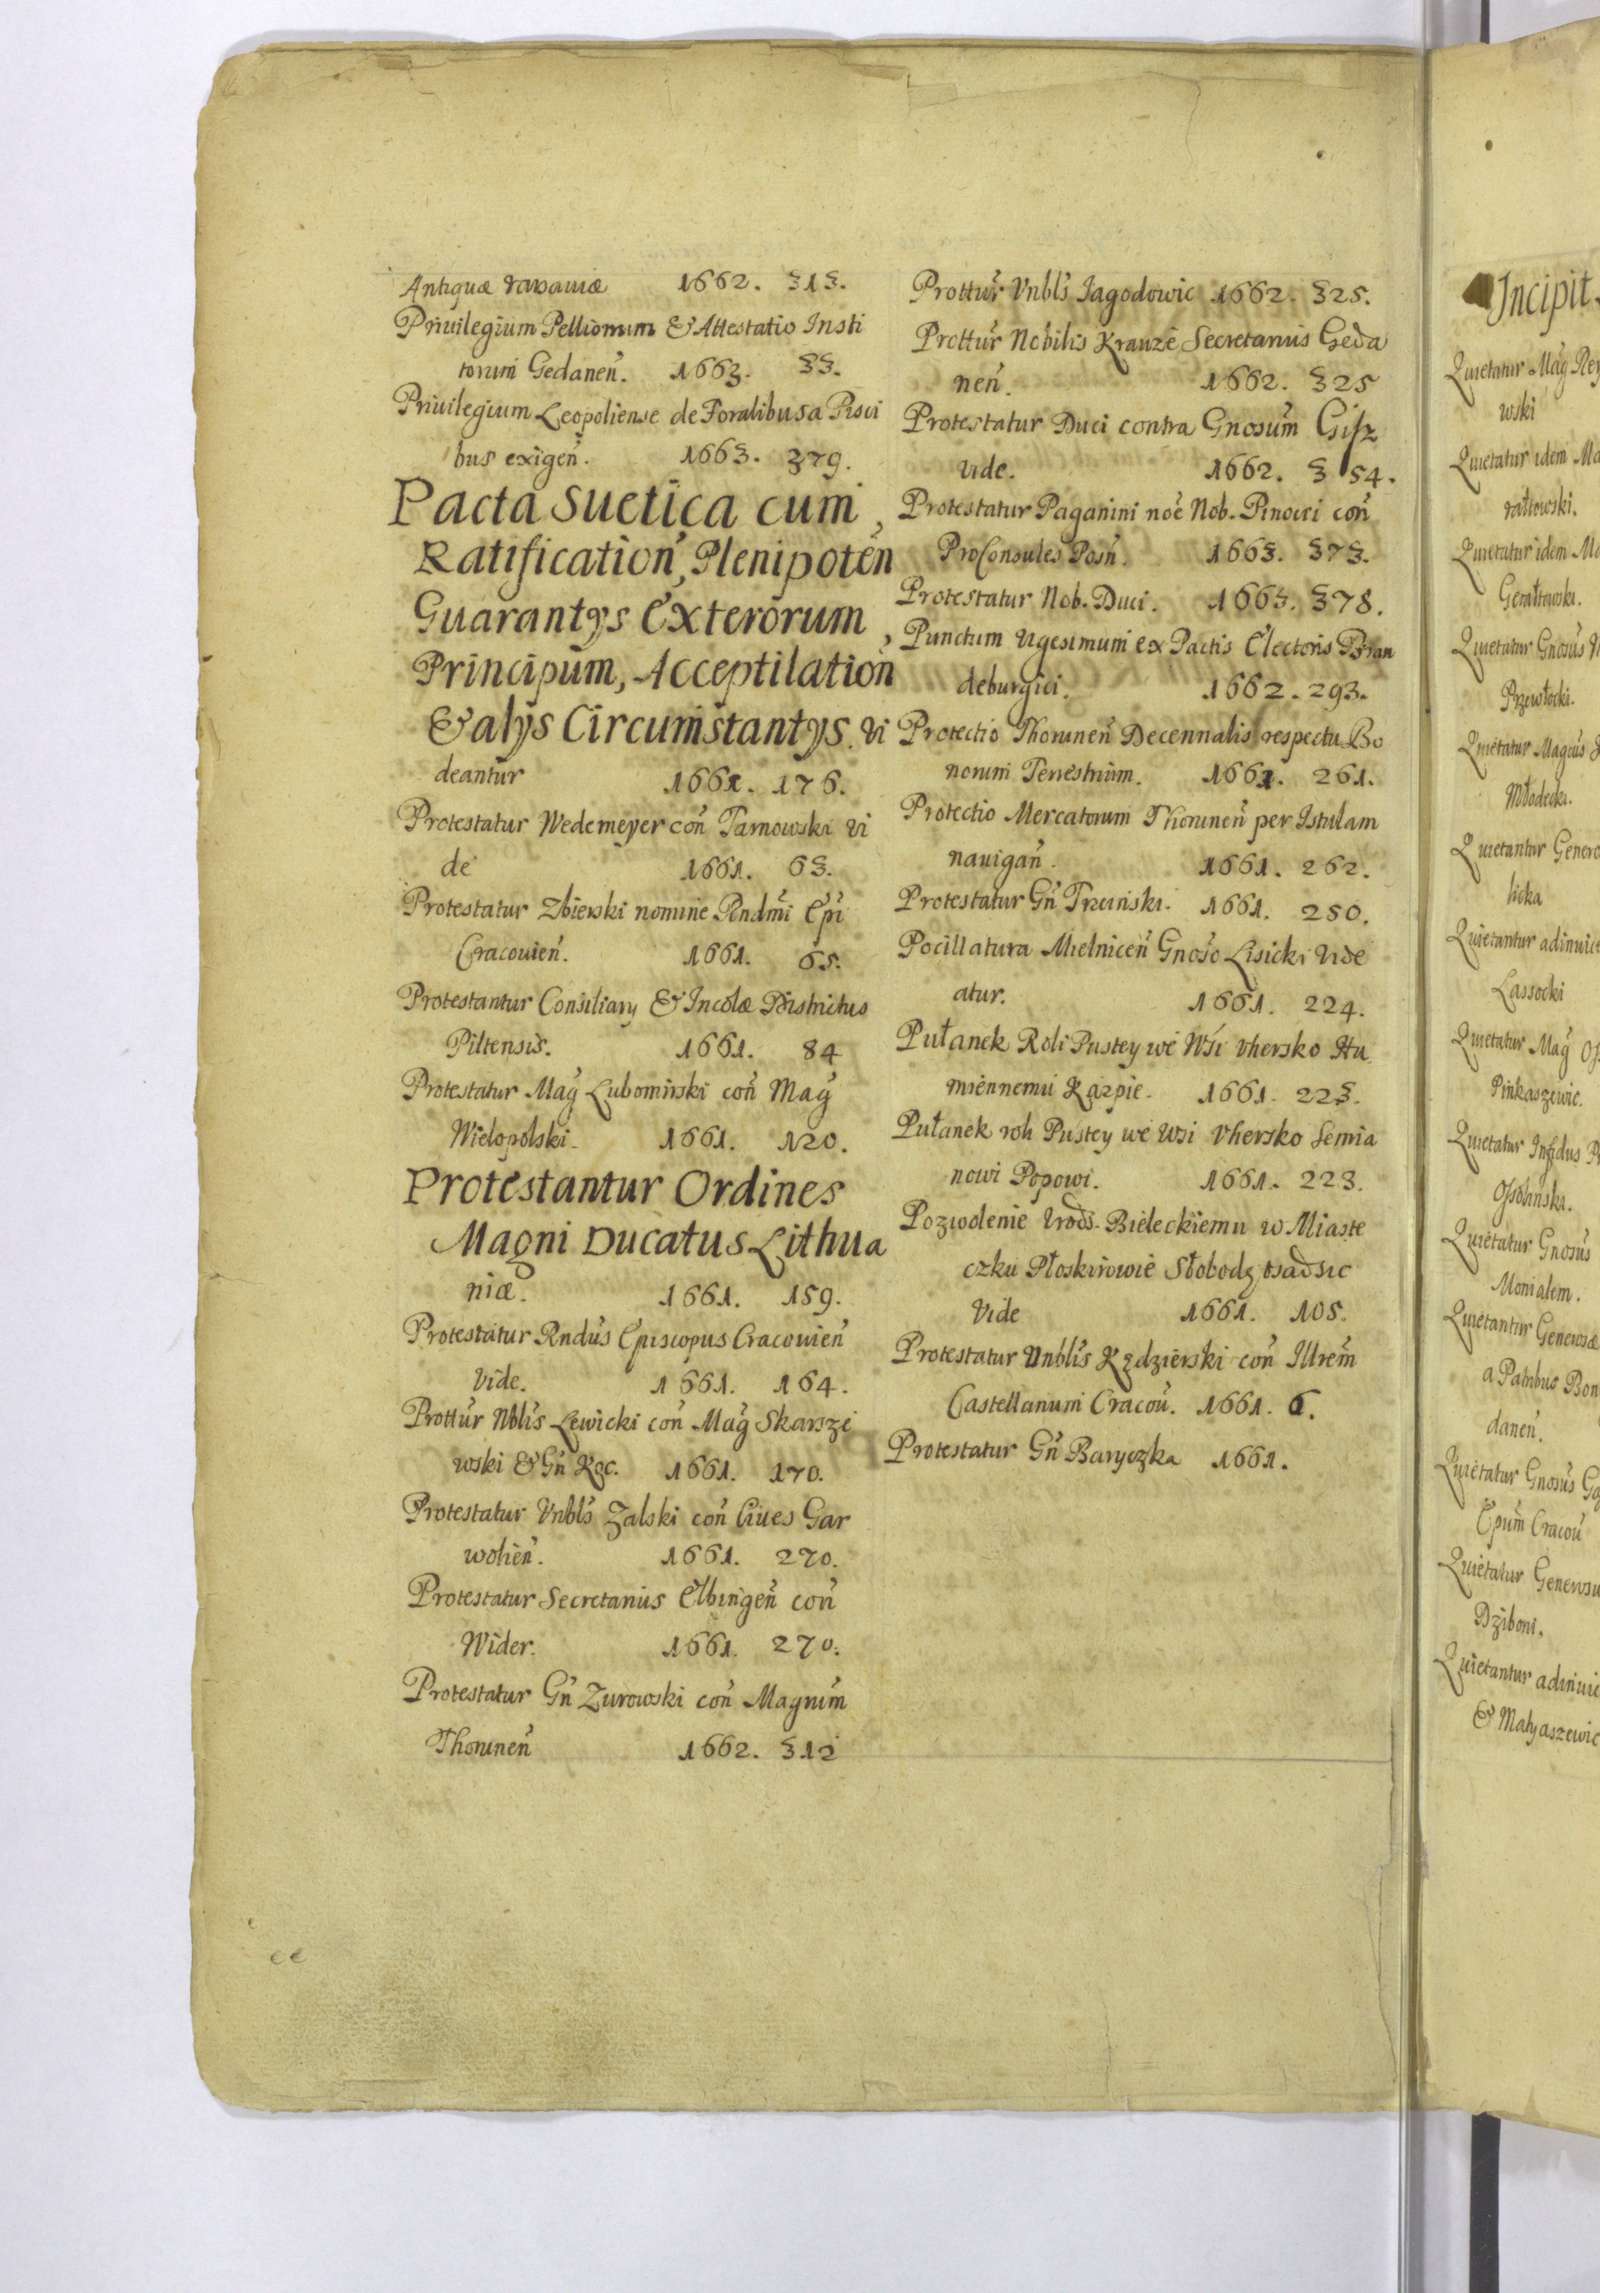 Antiquæ 1662. 313.
Priuilegium Pellionum & Attestatio Insti
torum Gedanen̄. 1663. 33.
Priuilegium Leopoliense de Foralibus a Pisci
bus exigen̄. 1663. 379.
Pacta Suetica cum
Ratification̄, Plenipotēn
Guarantys Exterorum
Principum, Acceptilation̄
& alys Circumstantys. Vi
deantur 1661. 176.
Protestatur Wedemeyer con̄ Tarnowski Vi
de 1661. 63.
Protestatur Zbierski nomine Rndm̄i Ep̄i
Cracouien̄. 1661. 65.
Protestantur Consiliary & Incolæ Districtus
Piltensis. 1661. 84
Protestatur Mag̃ Lubomirski con̄ Mag̃
Wielopolski. 1661. 120.
Protestantur Ordines
Magni Ducatus Lithua
niæ. 1661. 159.
Protestatur Rndūs Episcopus Cracouien̄
Vide. 1661. 164.
Prottūr Nblīs Lewicki con̄ Mag̃ Skarsze
wski & Gn̄ Koc. 1661. 170.
Protestatur Vnbls̄ Zalski con̄ Ciues Gar
wolien̄. 1661. 270.
Protestatur Secretarius Elbingen̄ con̄
Wider. 1661. 270.
Protestatur Gn̄ Zurowski con̄ Magrum̄
Thorunen̄ 1662. 312
Prottūr Vnbls̄ Jagodowic 1662. 325.
Prottūr Nobilis Krauze Secretarius Geda
nen̄. 1662. 325
Protestatur Duci contra Gnosum̄ Gisz
Vide. 1662. 354.
Protestatur Paganini noē Nob. Pinocci con̄
ProConsules Posn̄. 1663. 373.
Protestatur Nob. Duci. 1663. 378.
Punctum Vigesimum ex Pactis Electoris Bran
deburgici. 1662. 293.
Protectio Thorunen̄ Decennalis respectu Bo
norum Terrestrium. 1661. 261.
Protectio Mercatorum Thorunen̄ per Istulam
nauigan̄. 1661. 262.
Protestatur Gn̄ Trzcinski. 1661. 250.
Pocillatura Mielnicen̄ Gnoso Lisicki Vide
atur. 1661. 224.
Pułanek Roli Pustey we Wsi Vhersko Hu
miennemu Karpie. 1661. 223.
Pułanek roli Pustey we Wsi Vhersko Semia
nowi Popowi. 1661. 223.
Pozwolenie Vrodz. Bieleckiemu w Miaste
czku Płoskirowie Słobodę osadzic
Vide 1661. 105.
Protestatur Vnblīs Kędzierski con̄ Illrem̄
Castellanum Cracou̅. 1661. 6.
Protestatur Gn̄ Baryczka 1661.
ee
Incipit
Quietatur Mag̃
wski
Quietatur idem
Quietatur idem
Quietatur Gnosūs
Przewłocki.
Quietatur
Młodecki.
Quietantur
licka
Quietantur
Lassocki
Quietatur Mag̃
Pinkaszewic.
Quietatur
Quietatur Gnosūs
Monialem.
Quietantur
a Patribus
danen̄.
Quietatur Gnosūs
Epum̄ Cracou̅
Quietatur
Dziboni.
Quietantur
& Matyaszewic